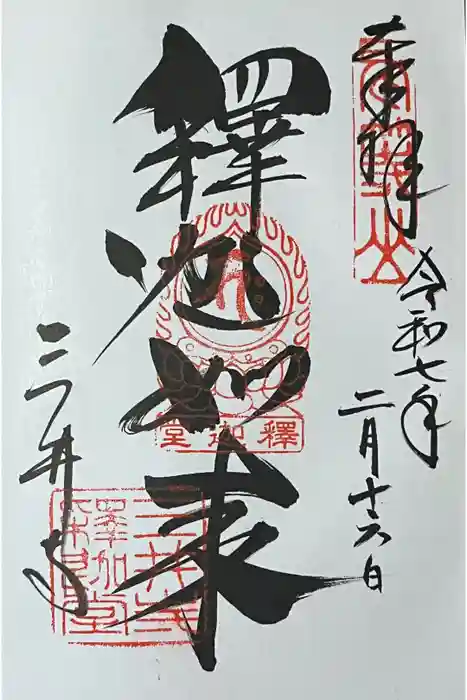 奉拝
令和七年
二月十六日
釋迦如来
釋迦堂
三井寺
三井寺
釋迦堂